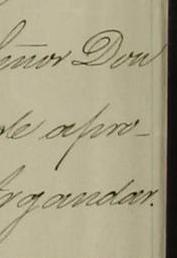 eñor Don
de apro-
Argandar.